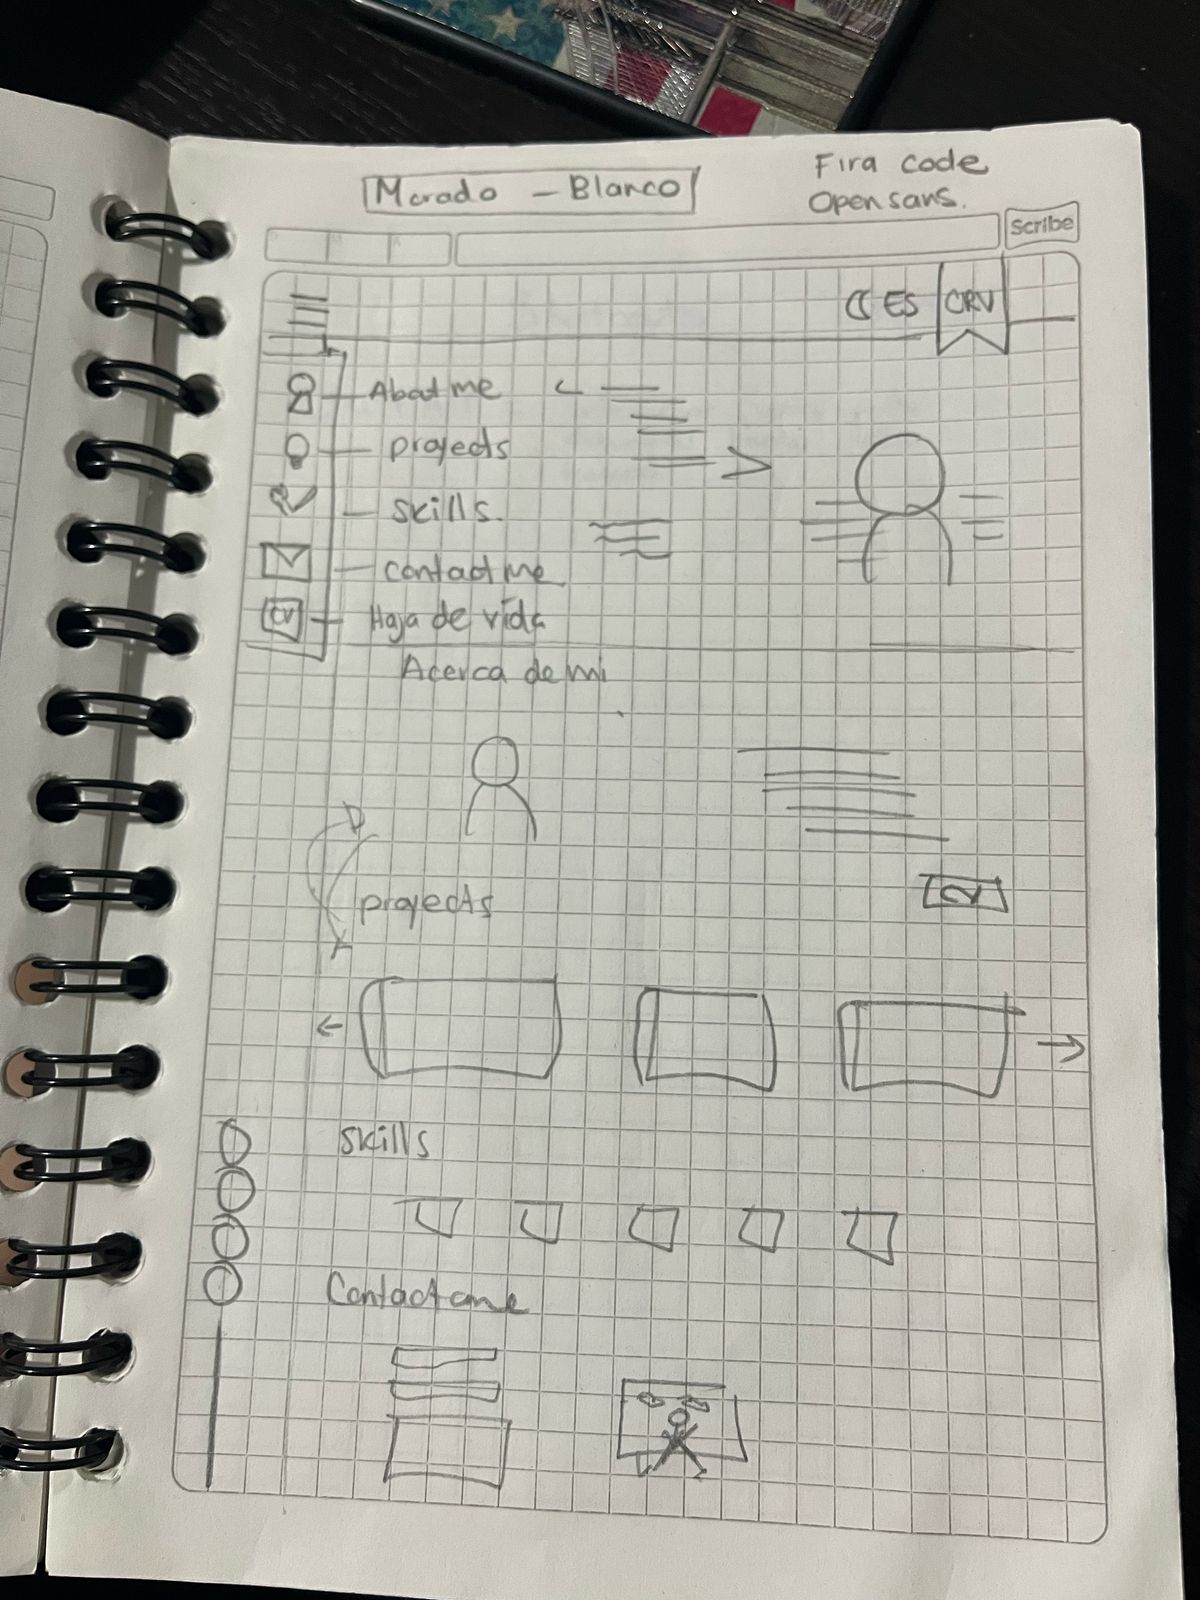 Morado - Blanco
Fira code
Open sans.
Scribe
ES
CRV
About me
projects
skills.
contact me
CV
Hoja de vida
Acerca de mi
projects
CV
skills
Contact me